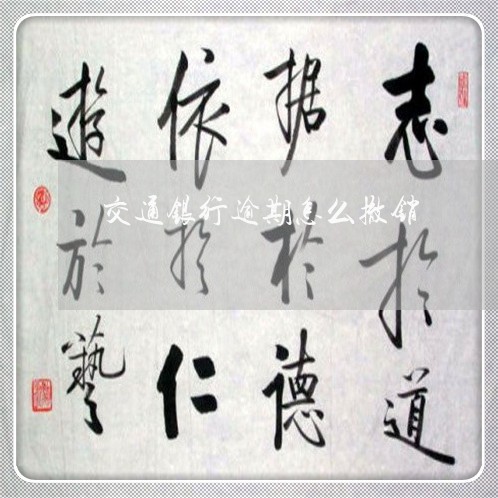 志於道
据於德
依於仁
遊於藝
交通银行逾期怎么撤销